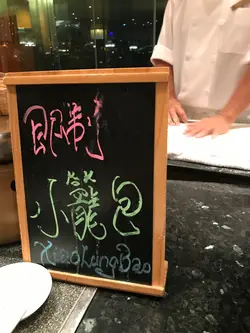 即制
小籠包
XiaoLongBao